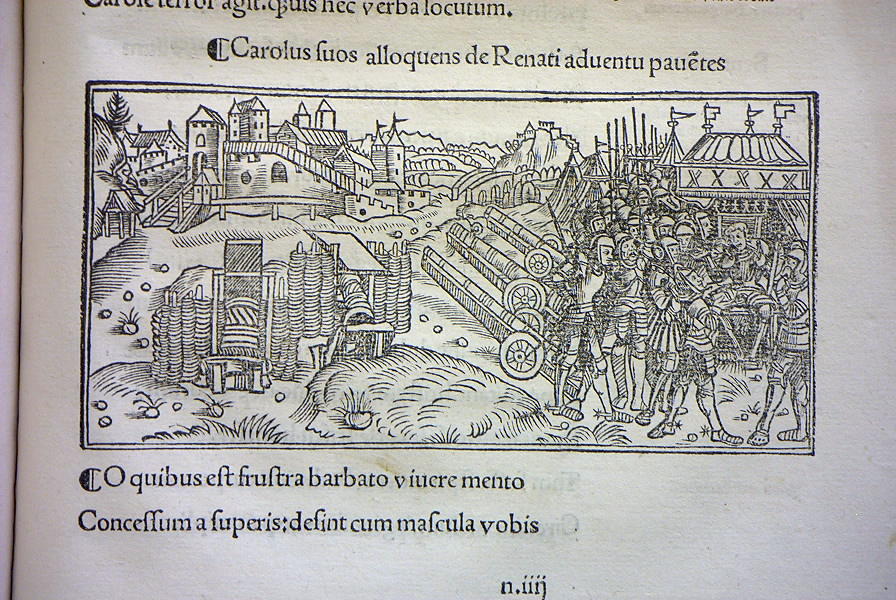 Carole terror agit.ꝙuis hec verba locutum.
⸿Carolus ſuos alloquens de Renati aduentu pauẽtes
⸿O quibus eſt fruſtra barbato viuere mento
Conceſſum a ſuperis:deſint cum maſcula vobis
n.iiij